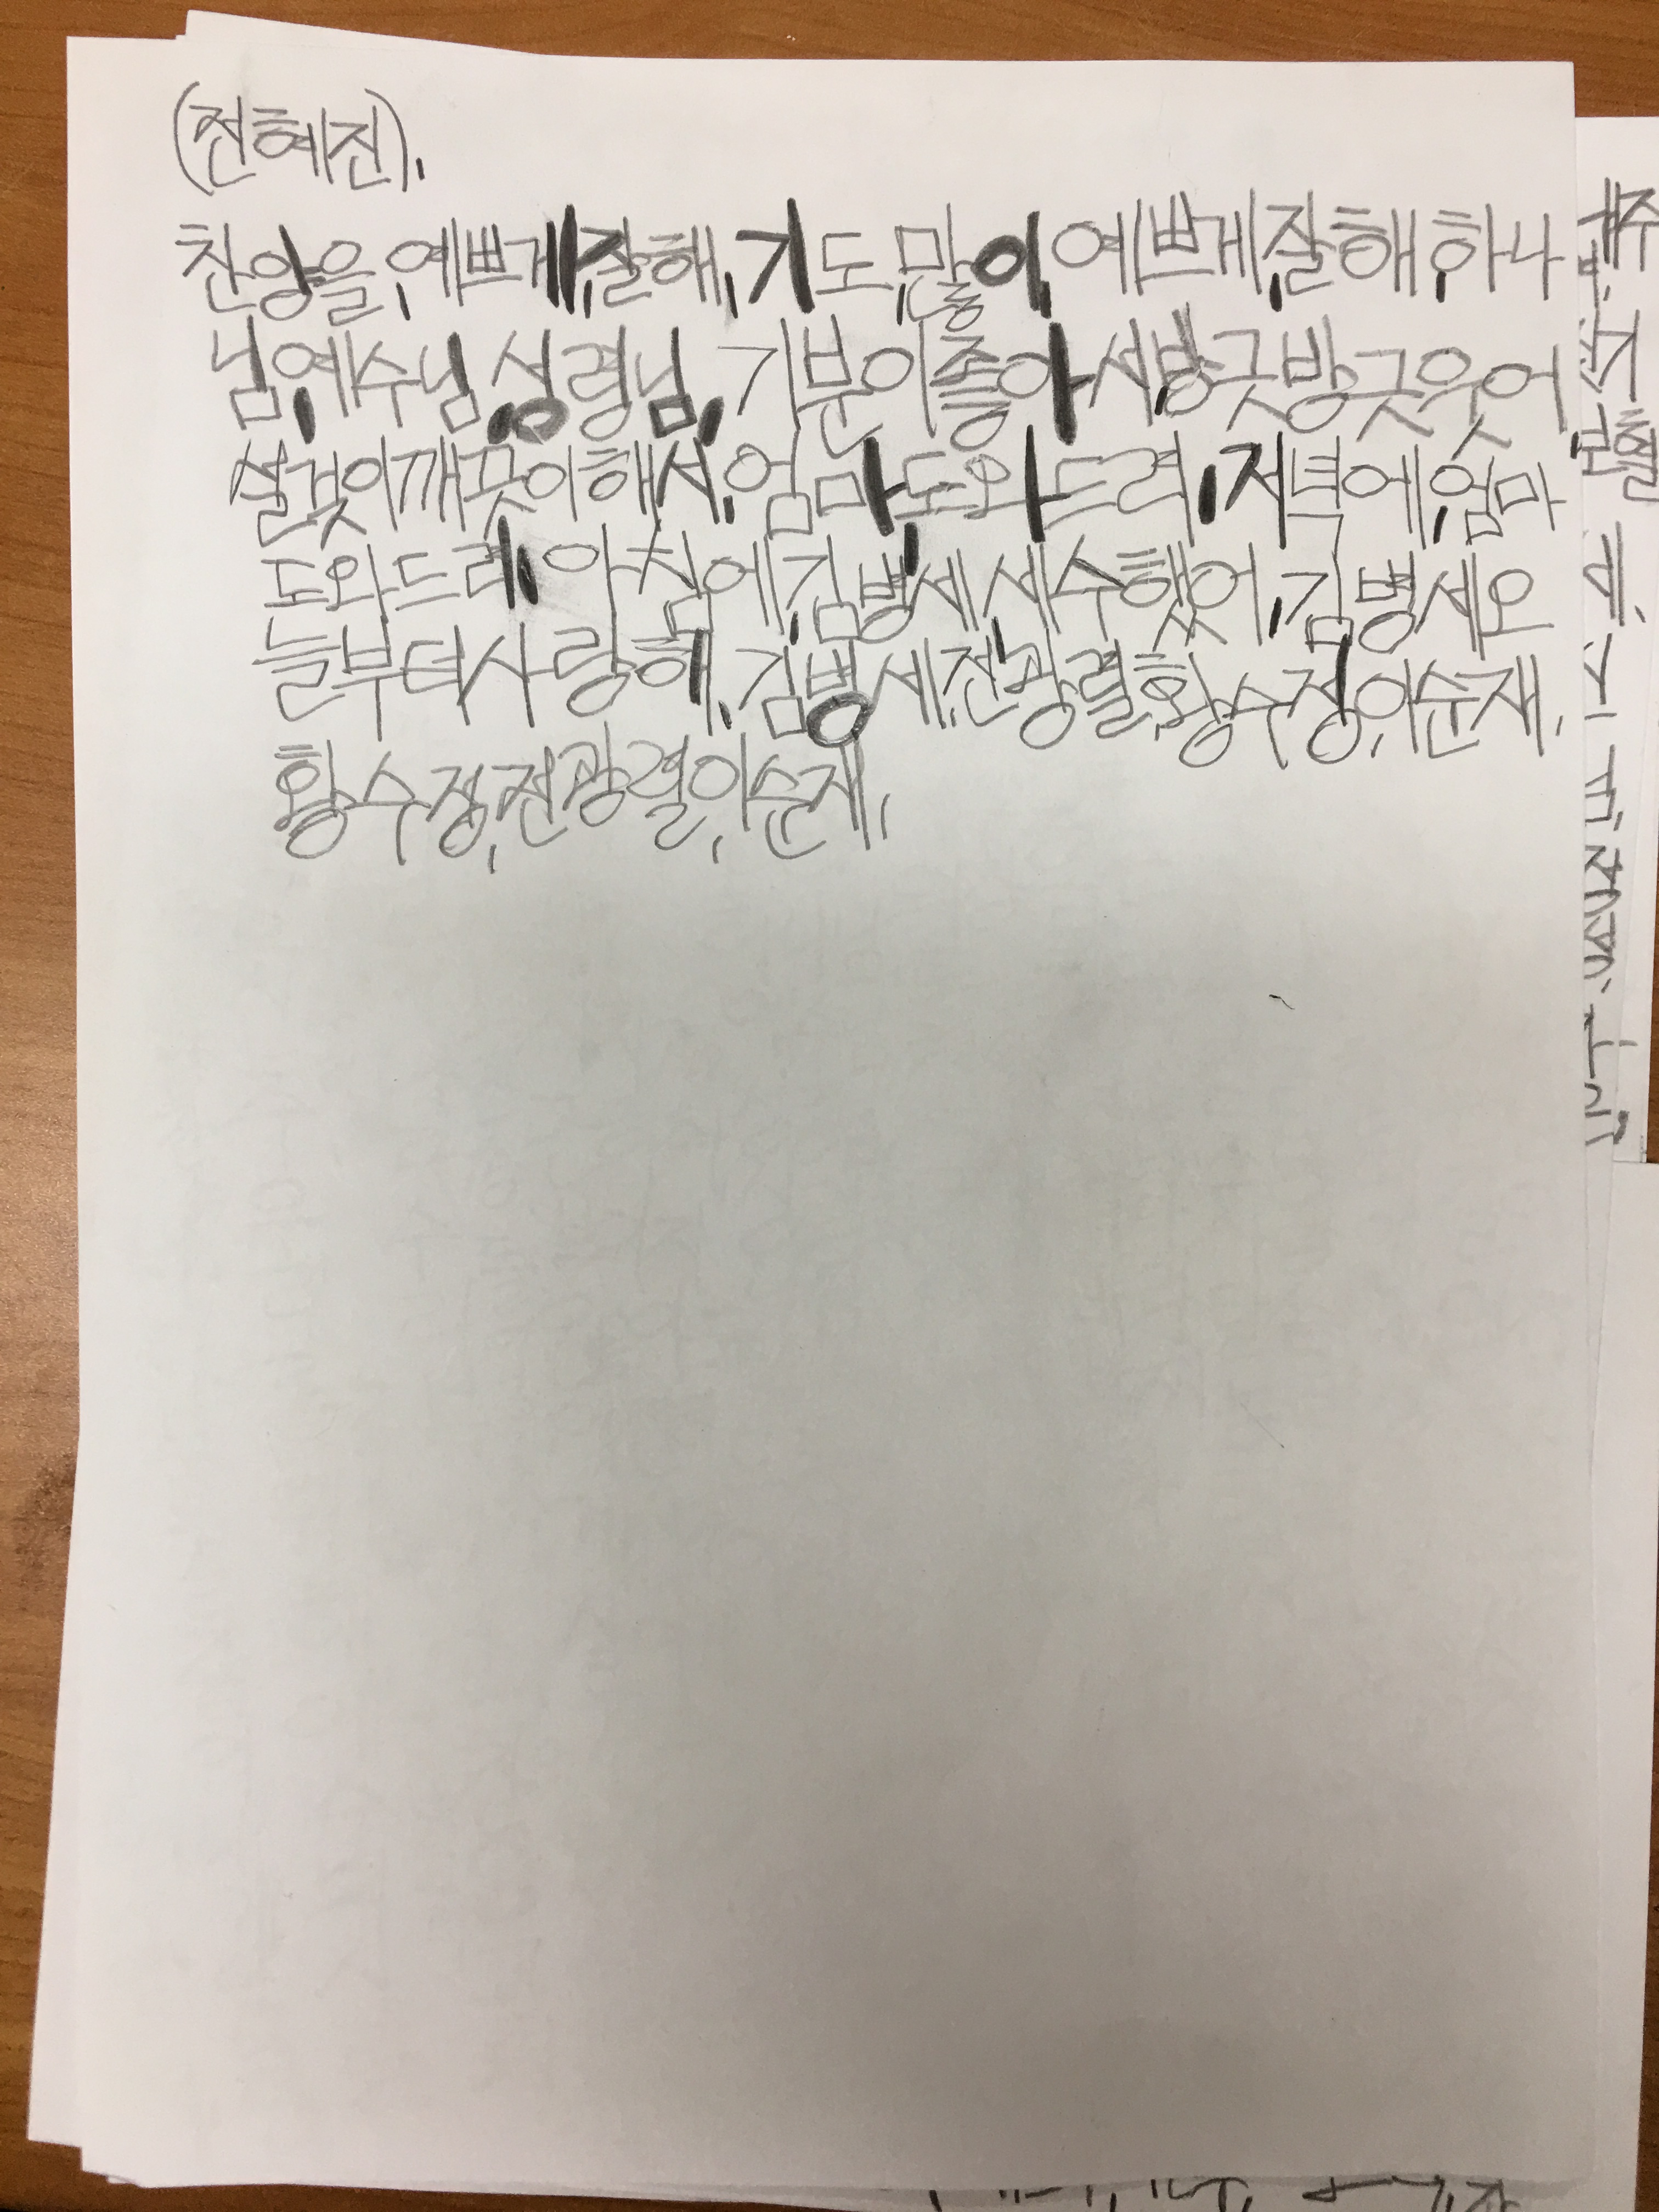 (전혜진),
찬양을,예쁘게,잘해,기도,많이,예쁘게,잘해,하나
님,예수님,성령님,기분이좋아서,방긋방긋웃어
설겆이깨끗이해서,엄마도와드려,저녁에,엄마
도와드려,아침에,김병세세수했어,김병세오
늘부터사랑해,김병세,전광렬,황수정,이순재,
황수정,전광렬,이순재,